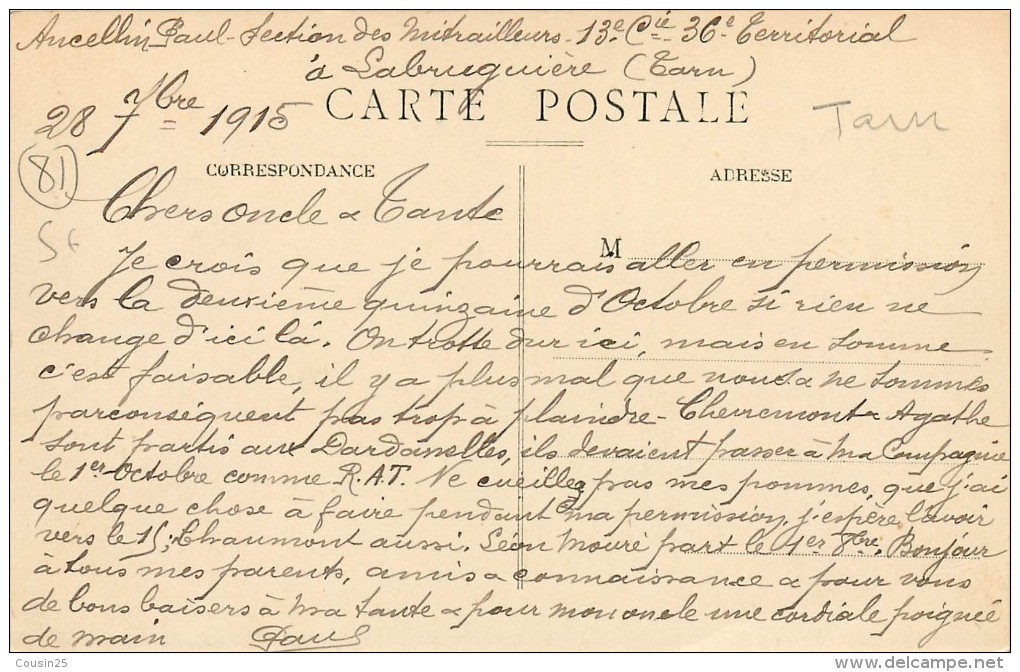 Ancellin Paul - Section des Mitrailleurs - 13e Cie 36e Territorial
à Labruguière (Tarn)
28 7bre 1915
CARTE POSTALE
Tarn
81
CORRESPONDANCE
ADRESSE
Chers oncle & Tante
M
Je crois que je pourrais aller en permission
vers la deuxième quinzaine d'Octobre si rien ne
change d'ici là. On trotte dur ici, mais en somme
c'est faisable, il y a plus mal que nous & ne sommes
parconséquent pas trop à plaindre - Chevremont & Agathe
sont partis aux Dardanelles, ils devaient passer à ma Compagnie
le 1er Octobre comme R.A.T. Ne cueillez pas mes pommes, que j'ai
quelque chose à faire pendant ma permission, j'espère l'avoir
vers le 15; Chaumont aussi. Léon Mouré part le 1er 8bre. Bonjour
à tous mes parents, amis & connaissance & pour vous
de bons baisers à ma tante & pour mon oncle une cordiale poignée
de main Paul
Cousin25
www.delcampe.net